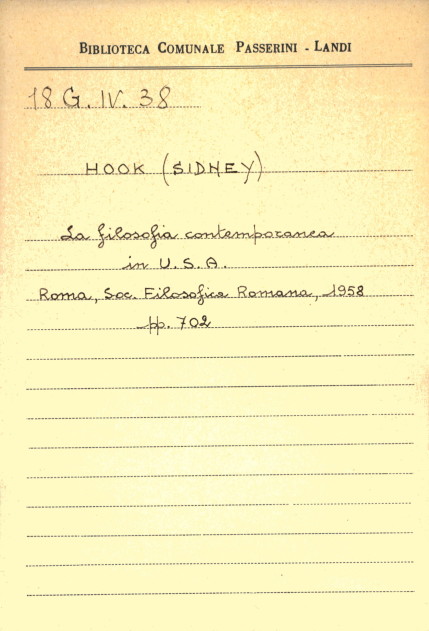 BIBLIOTECA COMUNALE PASSERINI - LANDI
18 G. IV. 38
HOOK (SIDNEY)
La filosofia contemporanea
in U.S.A.
Roma, Soc. Filosofica Romana, 1958
pp. 702